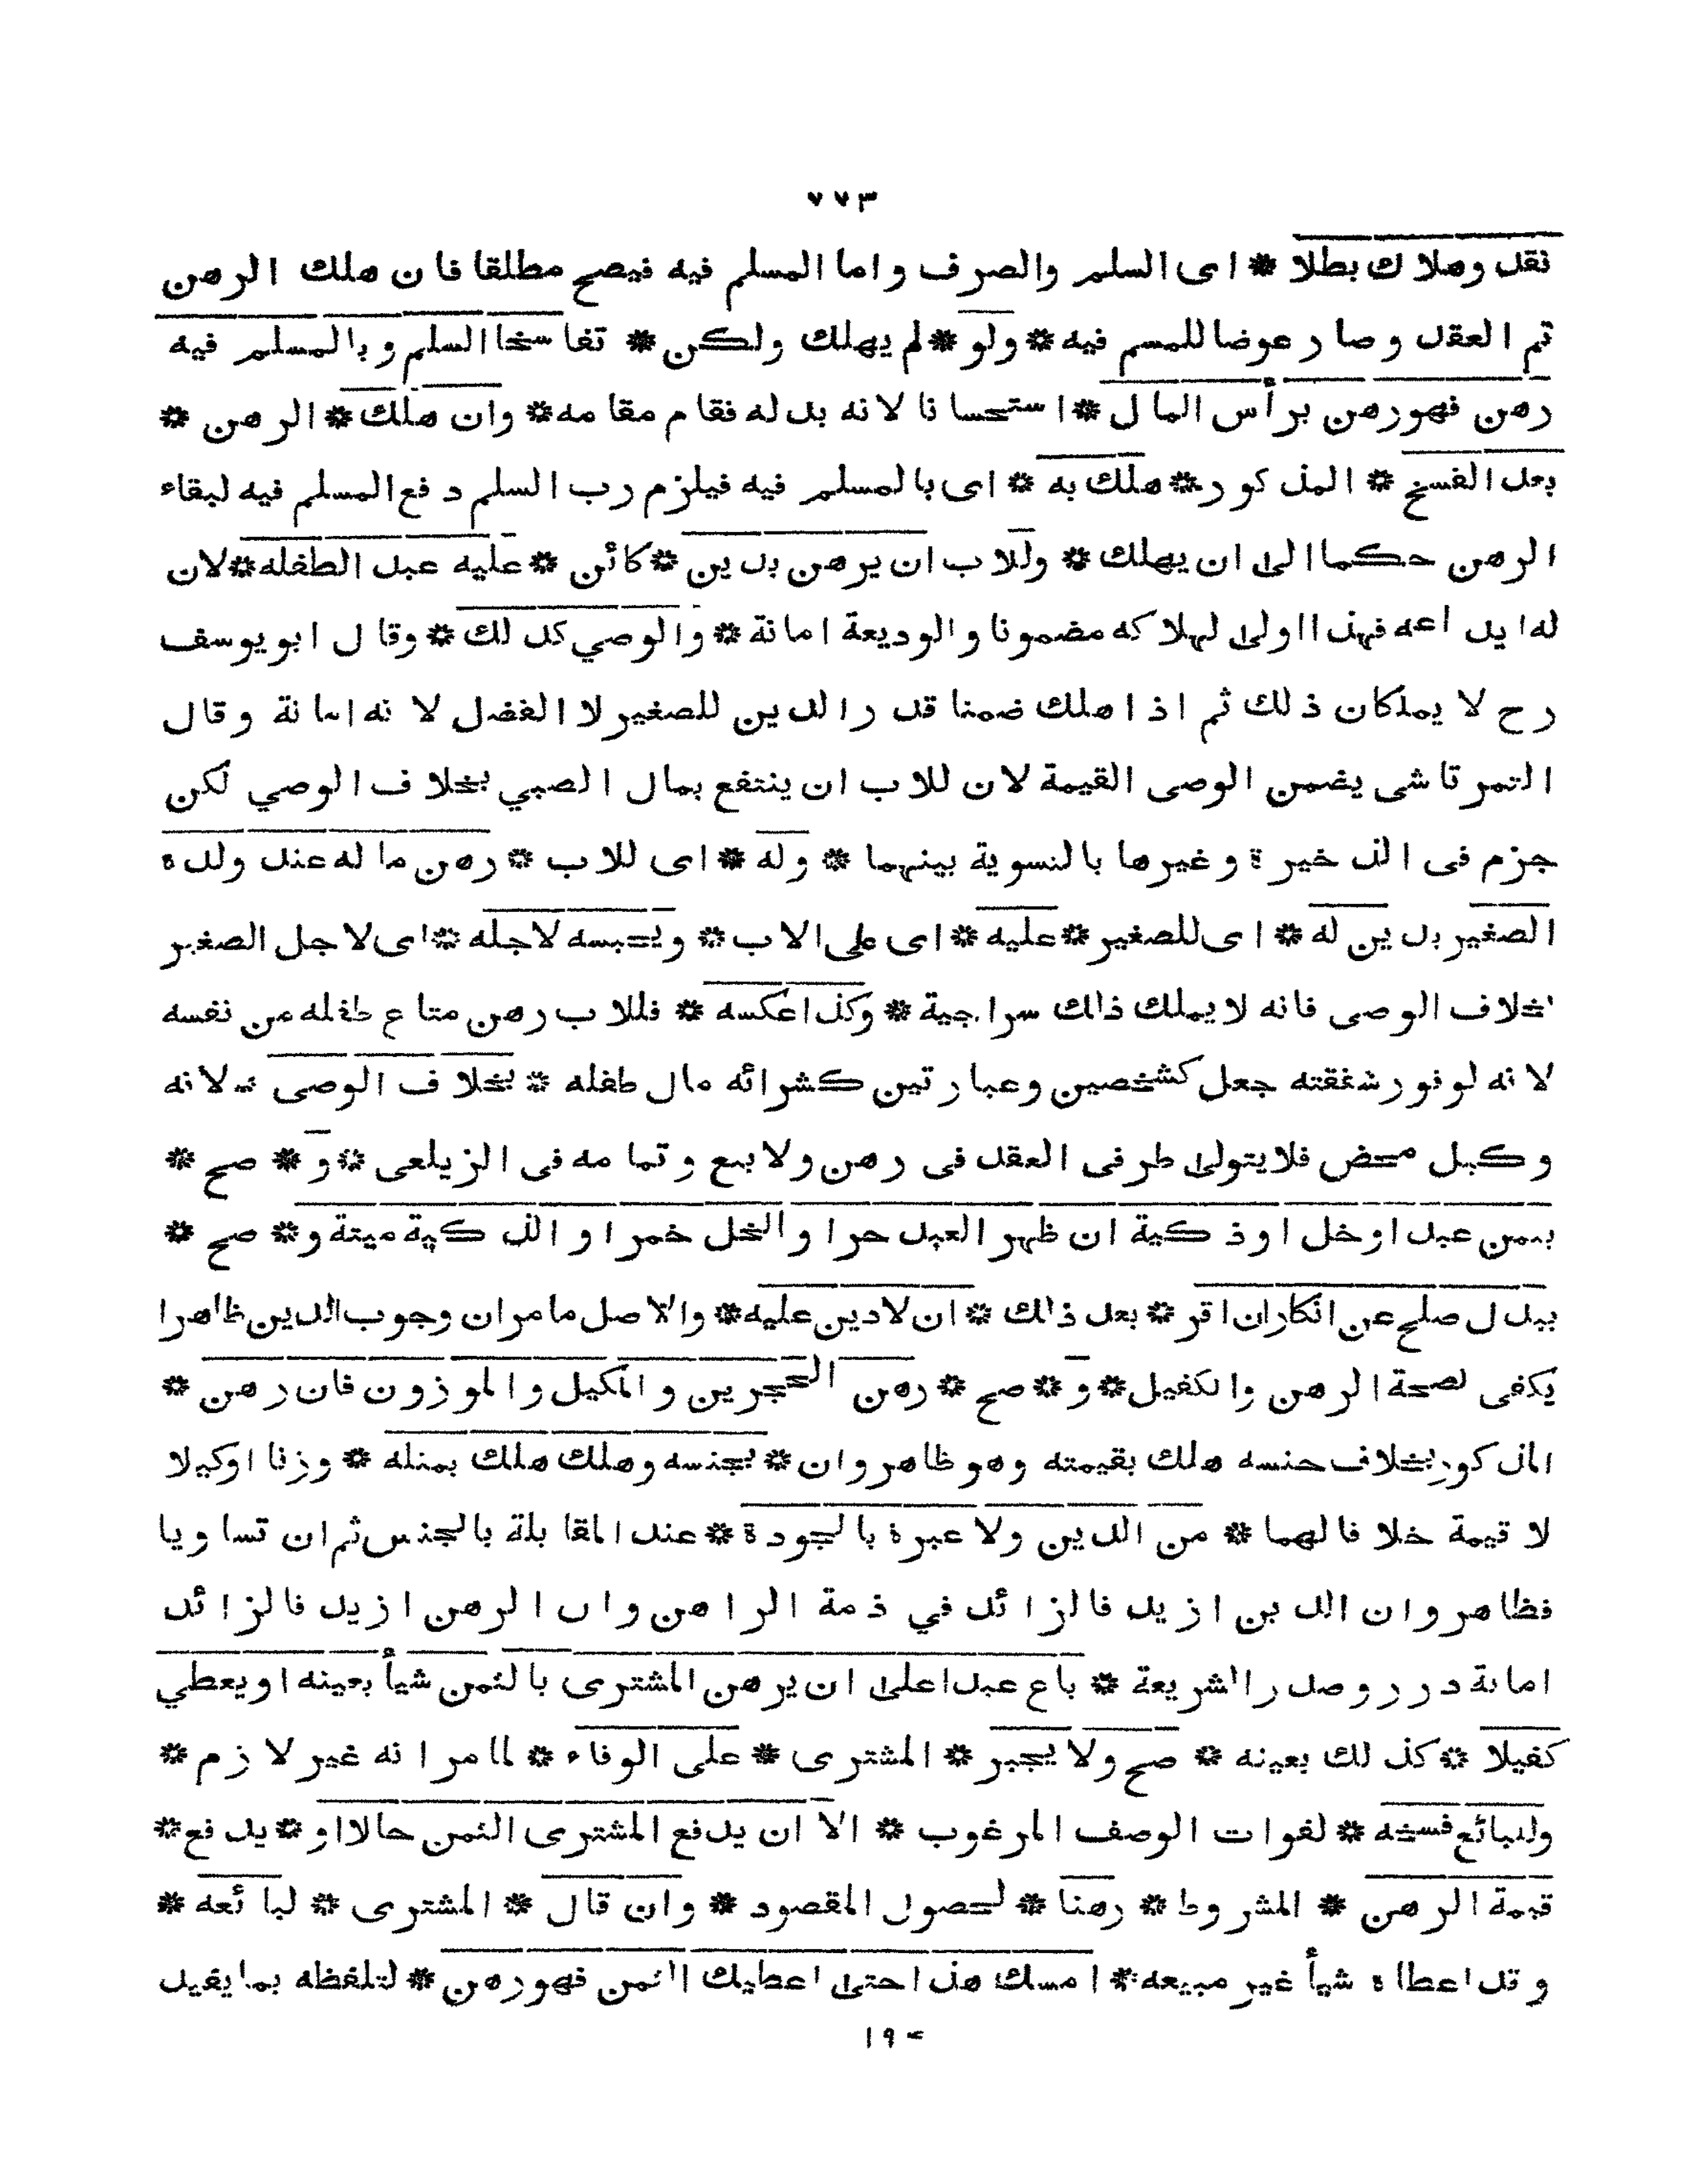 ٧٧٣
نقد وهلاك بطلا * اى السلم والصرف واما المسلم فيه فيصح مطلقا فان هلك الرهن
تم العقد وصار عوضا للمسم فيه * ولو * لم يهلك ولكن * تفاسخا السلم وبالمسلم فيه
رهن فهورهن برأس المال * استحسانا لانه بدله فقام مقامه * وان هلك * الرهن *
بعد الفسخ * المذكور * هلك به * اى بالمسلم فيه فيلزم رب السلم دفع المسلم فيه لبقاء
الرهن حكما الى ان يهلك * وللاب ان يرهن بدين * كائن * عليه عبد الطفله * لان
له ايداعه فهذا اولى لهلاكه مضمونا والوديعة امانة * والوصي كذلك * وقال ابو يوسف
رح لا يملكان ذلك ثم اذا هلك ضمنا قدر الدين للصغير لا الفضل لانه امانة وقال
التمرتاشى يضمن الوصى القيمة لان للاب ان ينتفع بمال الصبي بخلاف الوصي لكن
جزم فى الذخيرة وغيرها بالتسوية بينهما * وله * اى للاب * رهن ماله عند ولده
الصغير بدين له * اى للصغير * عليه * اى على الاب * ويحبسه لاجله * اى لاجل الصغير
بخلاف الوصى فانه لا يملك ذلك سراجية * وكذا عكسه * فللاب رهن متاع طفله من نفسه
لانه لوفور شفقته جعل كشخصين وعبارتين كشرائه مال طفله * بخلاف الوصى * لانه
وكيل محض فلا يتولى طرفى العقد فى رهن ولا بيع وتمامه فى الزيلعى * و * صح *
بثمن عبد او خل او ذكية ان ظهر العبد حرا والخل خمرا والذكية ميتة و * صح *
ببدل صلح عن انكار ان اقر * بعد ذلك * ان لا دين عليه * والاصل مامر ان وجوب الدين ظاهرا
يكفى لصحة الرهن والكفيل * و * صح * رهن الحجرين والمكيل والموزون فان رهن *
المذكور بخلاف جنسه هلك بقيمته وهو ظاهر وان * بجنسه وهلك هلك بمثله * وزنا او كيلا
لا قيمة خلافا لهما * من الدين ولا عبرة بالجودة * عند المقابلة بالجنس ثم ان تساويا
فظاهر وان الدين ازيد فالزائد في ذمة الراهن وان الرهن ازيد فالزائد
امانة درر وصدر الشريعة * باع عبدا على ان يرهن المشترى بالثمن شيأ بعينه او يعطي
كفيلا * كذلك بعينه * صح ولا يجبر * المشترى * على الوفاء * لما مر انه غير لازم *
وللبائع فسخه * لفوات الوصف المرغوب * الا ان يدفع المشترى الثمن حالا او * يدفع *
قيمة الرهن * المشروط * رهنا * لحصول المقصود * وان قال * المشترى * لبائعه *
وقد اعطاه شيأ غير مبيعه * امسك هذا حتى اعطيك الثمن فهورهن * لتلفظه بما يفيد